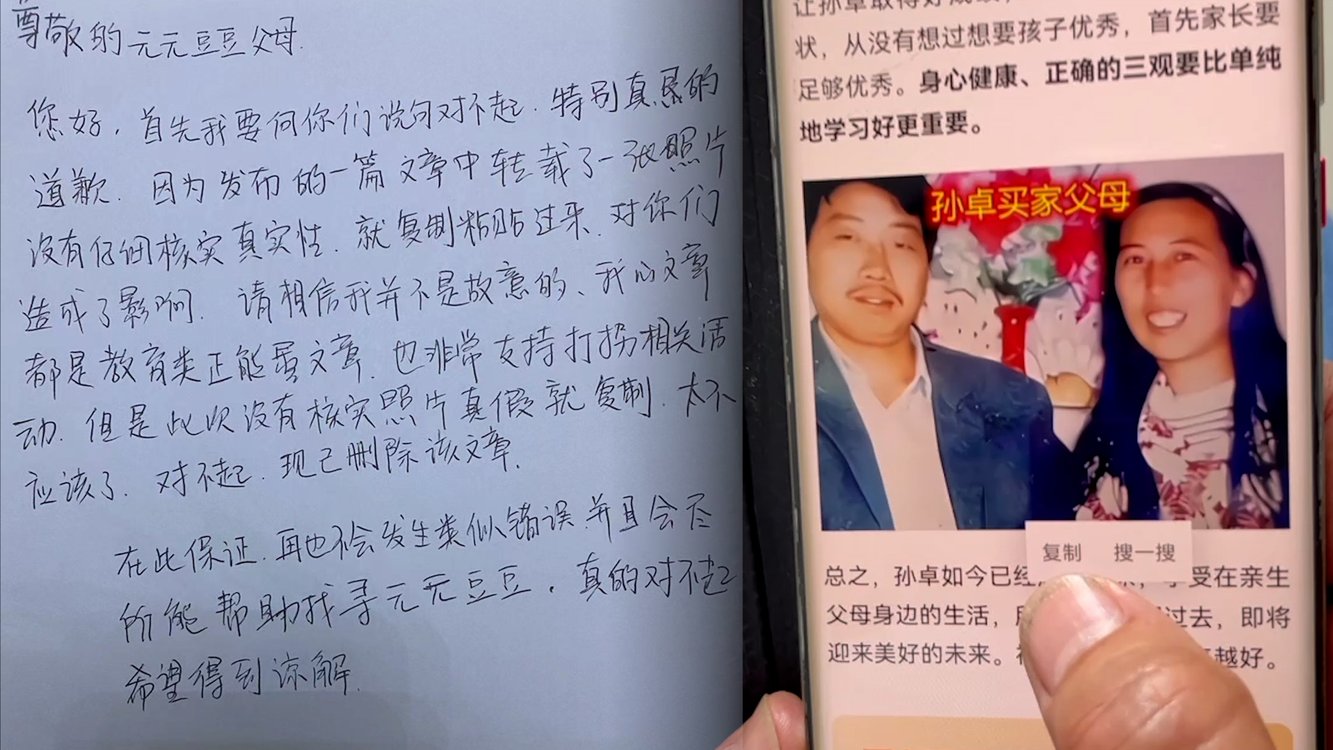 尊敬的元元豆豆父母.
您好，首先我要向你们说句对不起.特别真恳的
道歉.因为发布的一篇文章中转载了一张照片
没有仔细核实真实性.就复制粘贴过来.对你们
造成了影响.请相信我并不是故意的、我的文章
都是教育类正能量文章.也非常支持打拐相关活
动.但是此次没有核实照片真假就复制.太不
应该了.对不起.现已删除该文章.
在此保证.再也不会发生类似错误并且会尽
所能帮助找寻元元豆豆.真的对不起
希望得到谅解.
让孙卓取得好成绩，
状，从没有想过想要孩子优秀，首先家长要
足够优秀。身心健康、正确的三观要比单纯
地学习好更重要。
孙卓买家父母
复制 搜一搜
总之，孙卓如今已经 受在亲生
父母身边的生活， 过去，即将
迎来美好的未来。 越好。